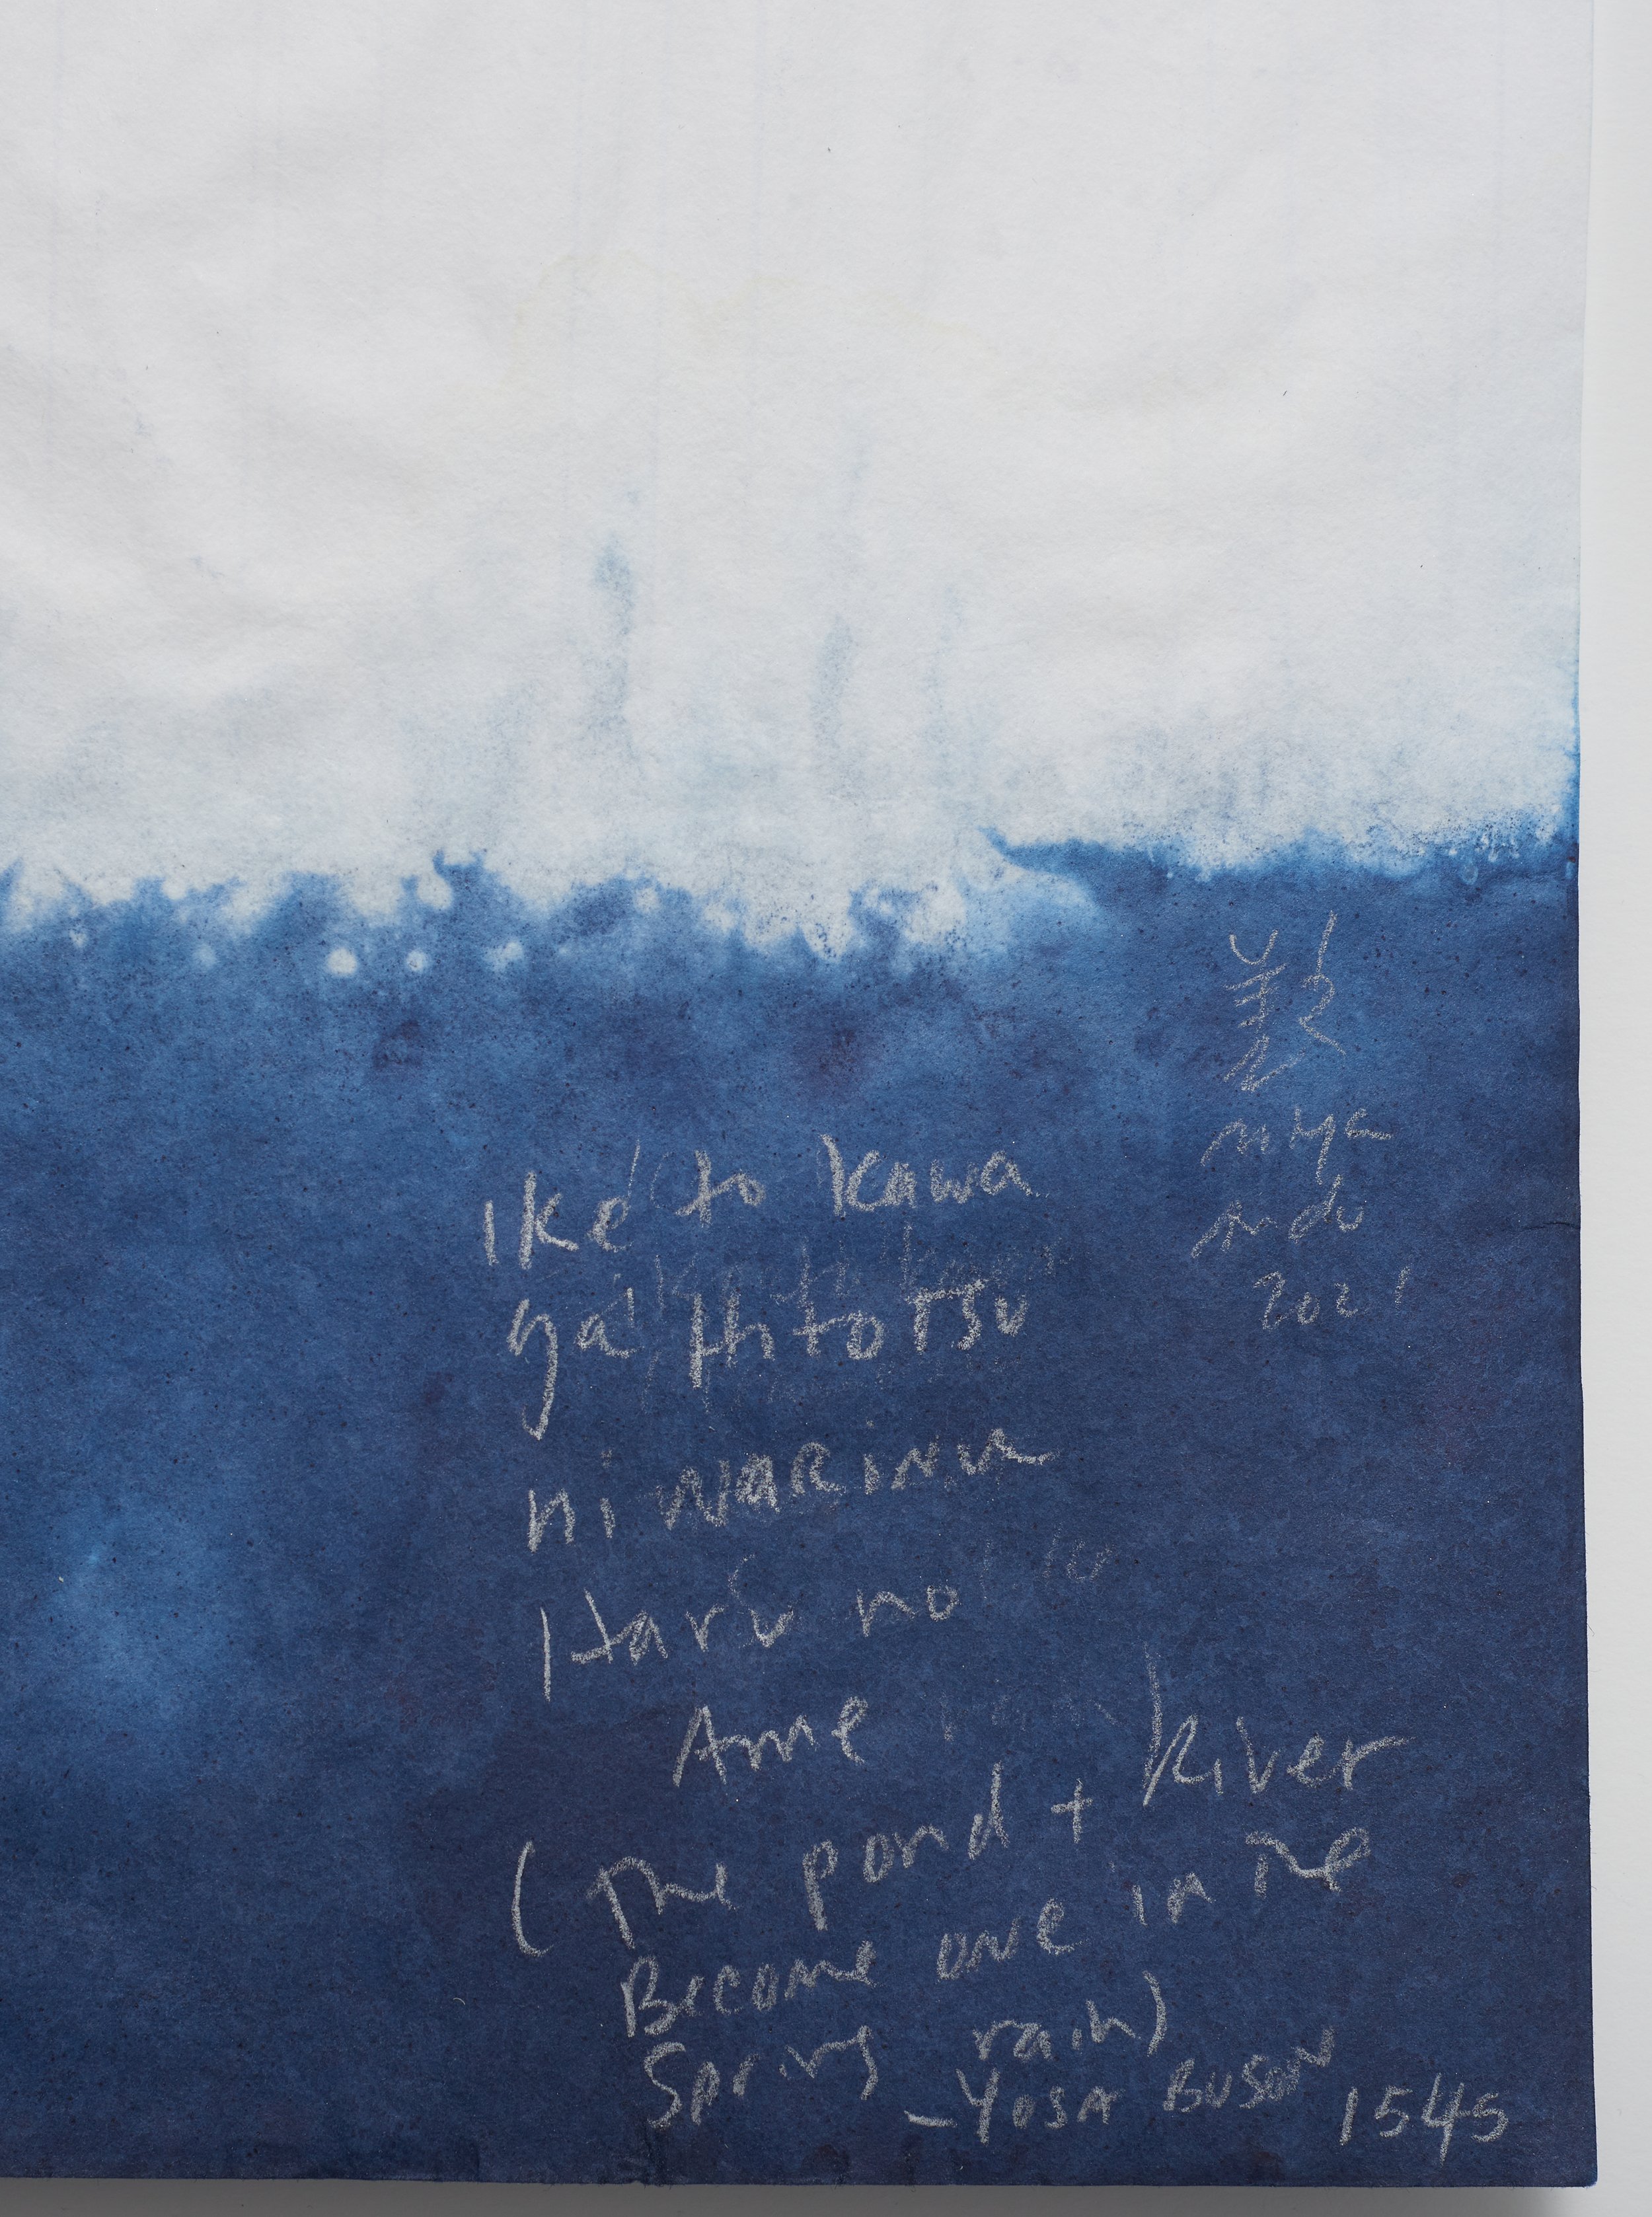 miya
ando
2021
Iké to kawa
ga Hitotsu
ni NARiNu
Haru no
Ame
(The pond + River
Become one in the
Spring rain)
– YOSA BUSON 1545